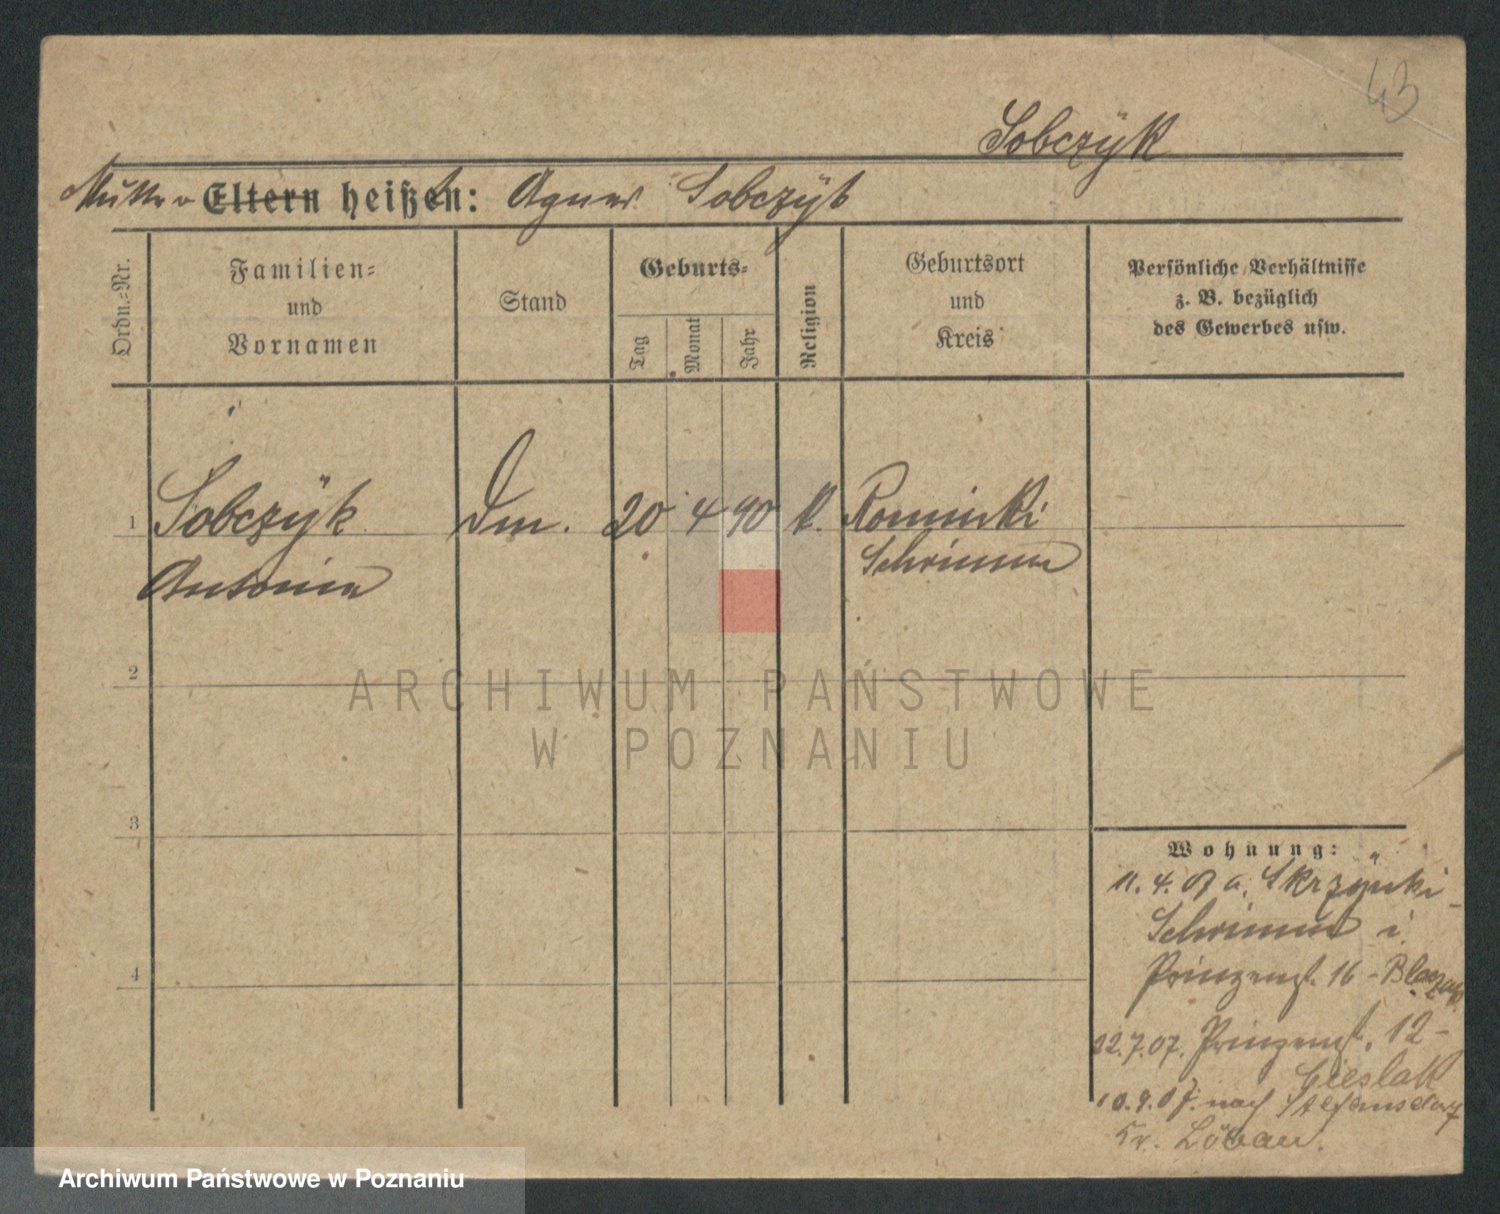 43
Sobczÿk
Mutter Eltern heißt: Agnes Sobczÿk
Ordn.-Nr.
Familien-
und
Vornamen
Stand
Geburts-
Tag
Monat
Jahr
Religion
Geburtsort
und
Kreis
Persönliche Verhältnisse
z. B. bezüglich
des Gewerbes usw.
1 Sobczÿk Dm. 20 4 90 k. Rominki
Antonina Schrimm
2
3
4
Wohnung:
11. 4. 07 a. Skrzÿnki
Schrimm i
Prinzenst. 16 -
22.7.07. Prinzenst. 12 -
Cieslak
10.9.07. nach Stefansdorf
Kr. Löbau.
ARCHIWUM PAŃSTWOWE
W POZNANIU
Archiwum Państwowe w Poznaniu